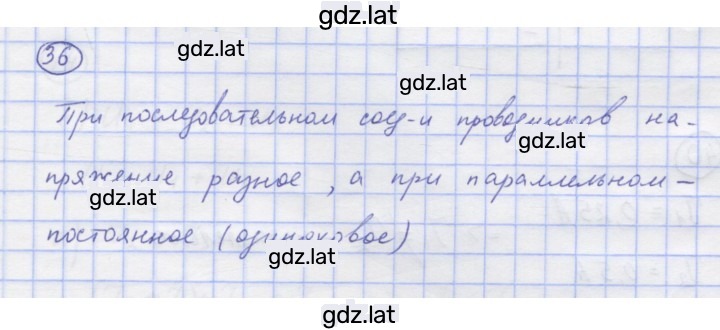 gdz.lat
36
gdz.lat
gdz.lat
При последовательном соед-и проводников на-
пряжение разное, а при параллельном –
gdz.lat
постоянное (одинаковое)
gdz.lat
gdz.lat